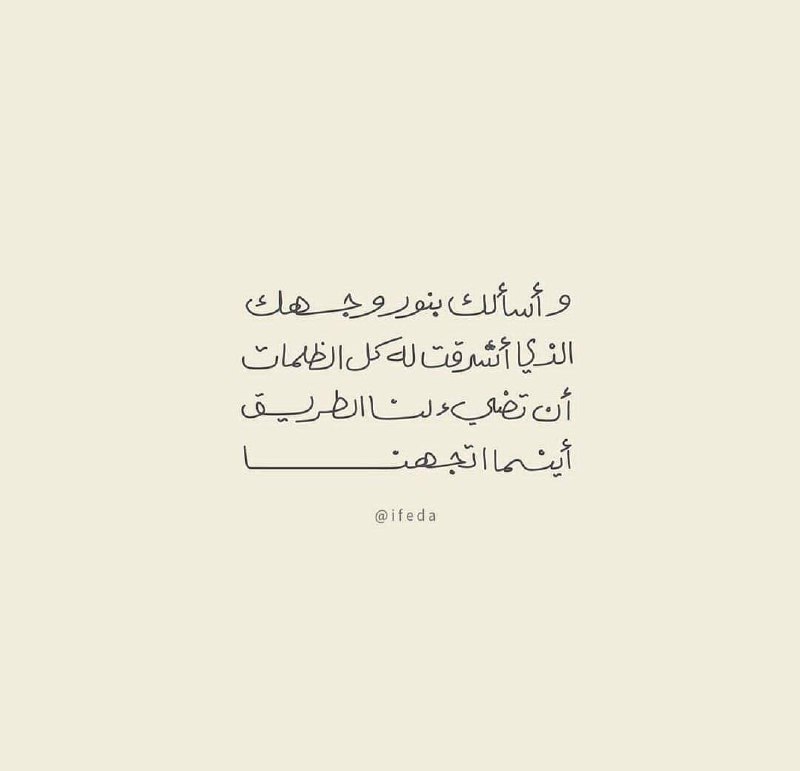 وأسألك بنور وجهك
الذي أشرقت له كل الظلمات
أن تضيء لنا الطريق
أينما اتجهنا
@ifeda